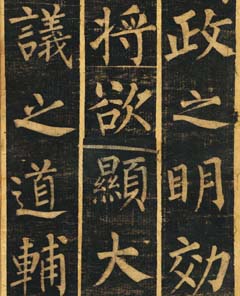 政之明効
将欲顯大
議之道輔